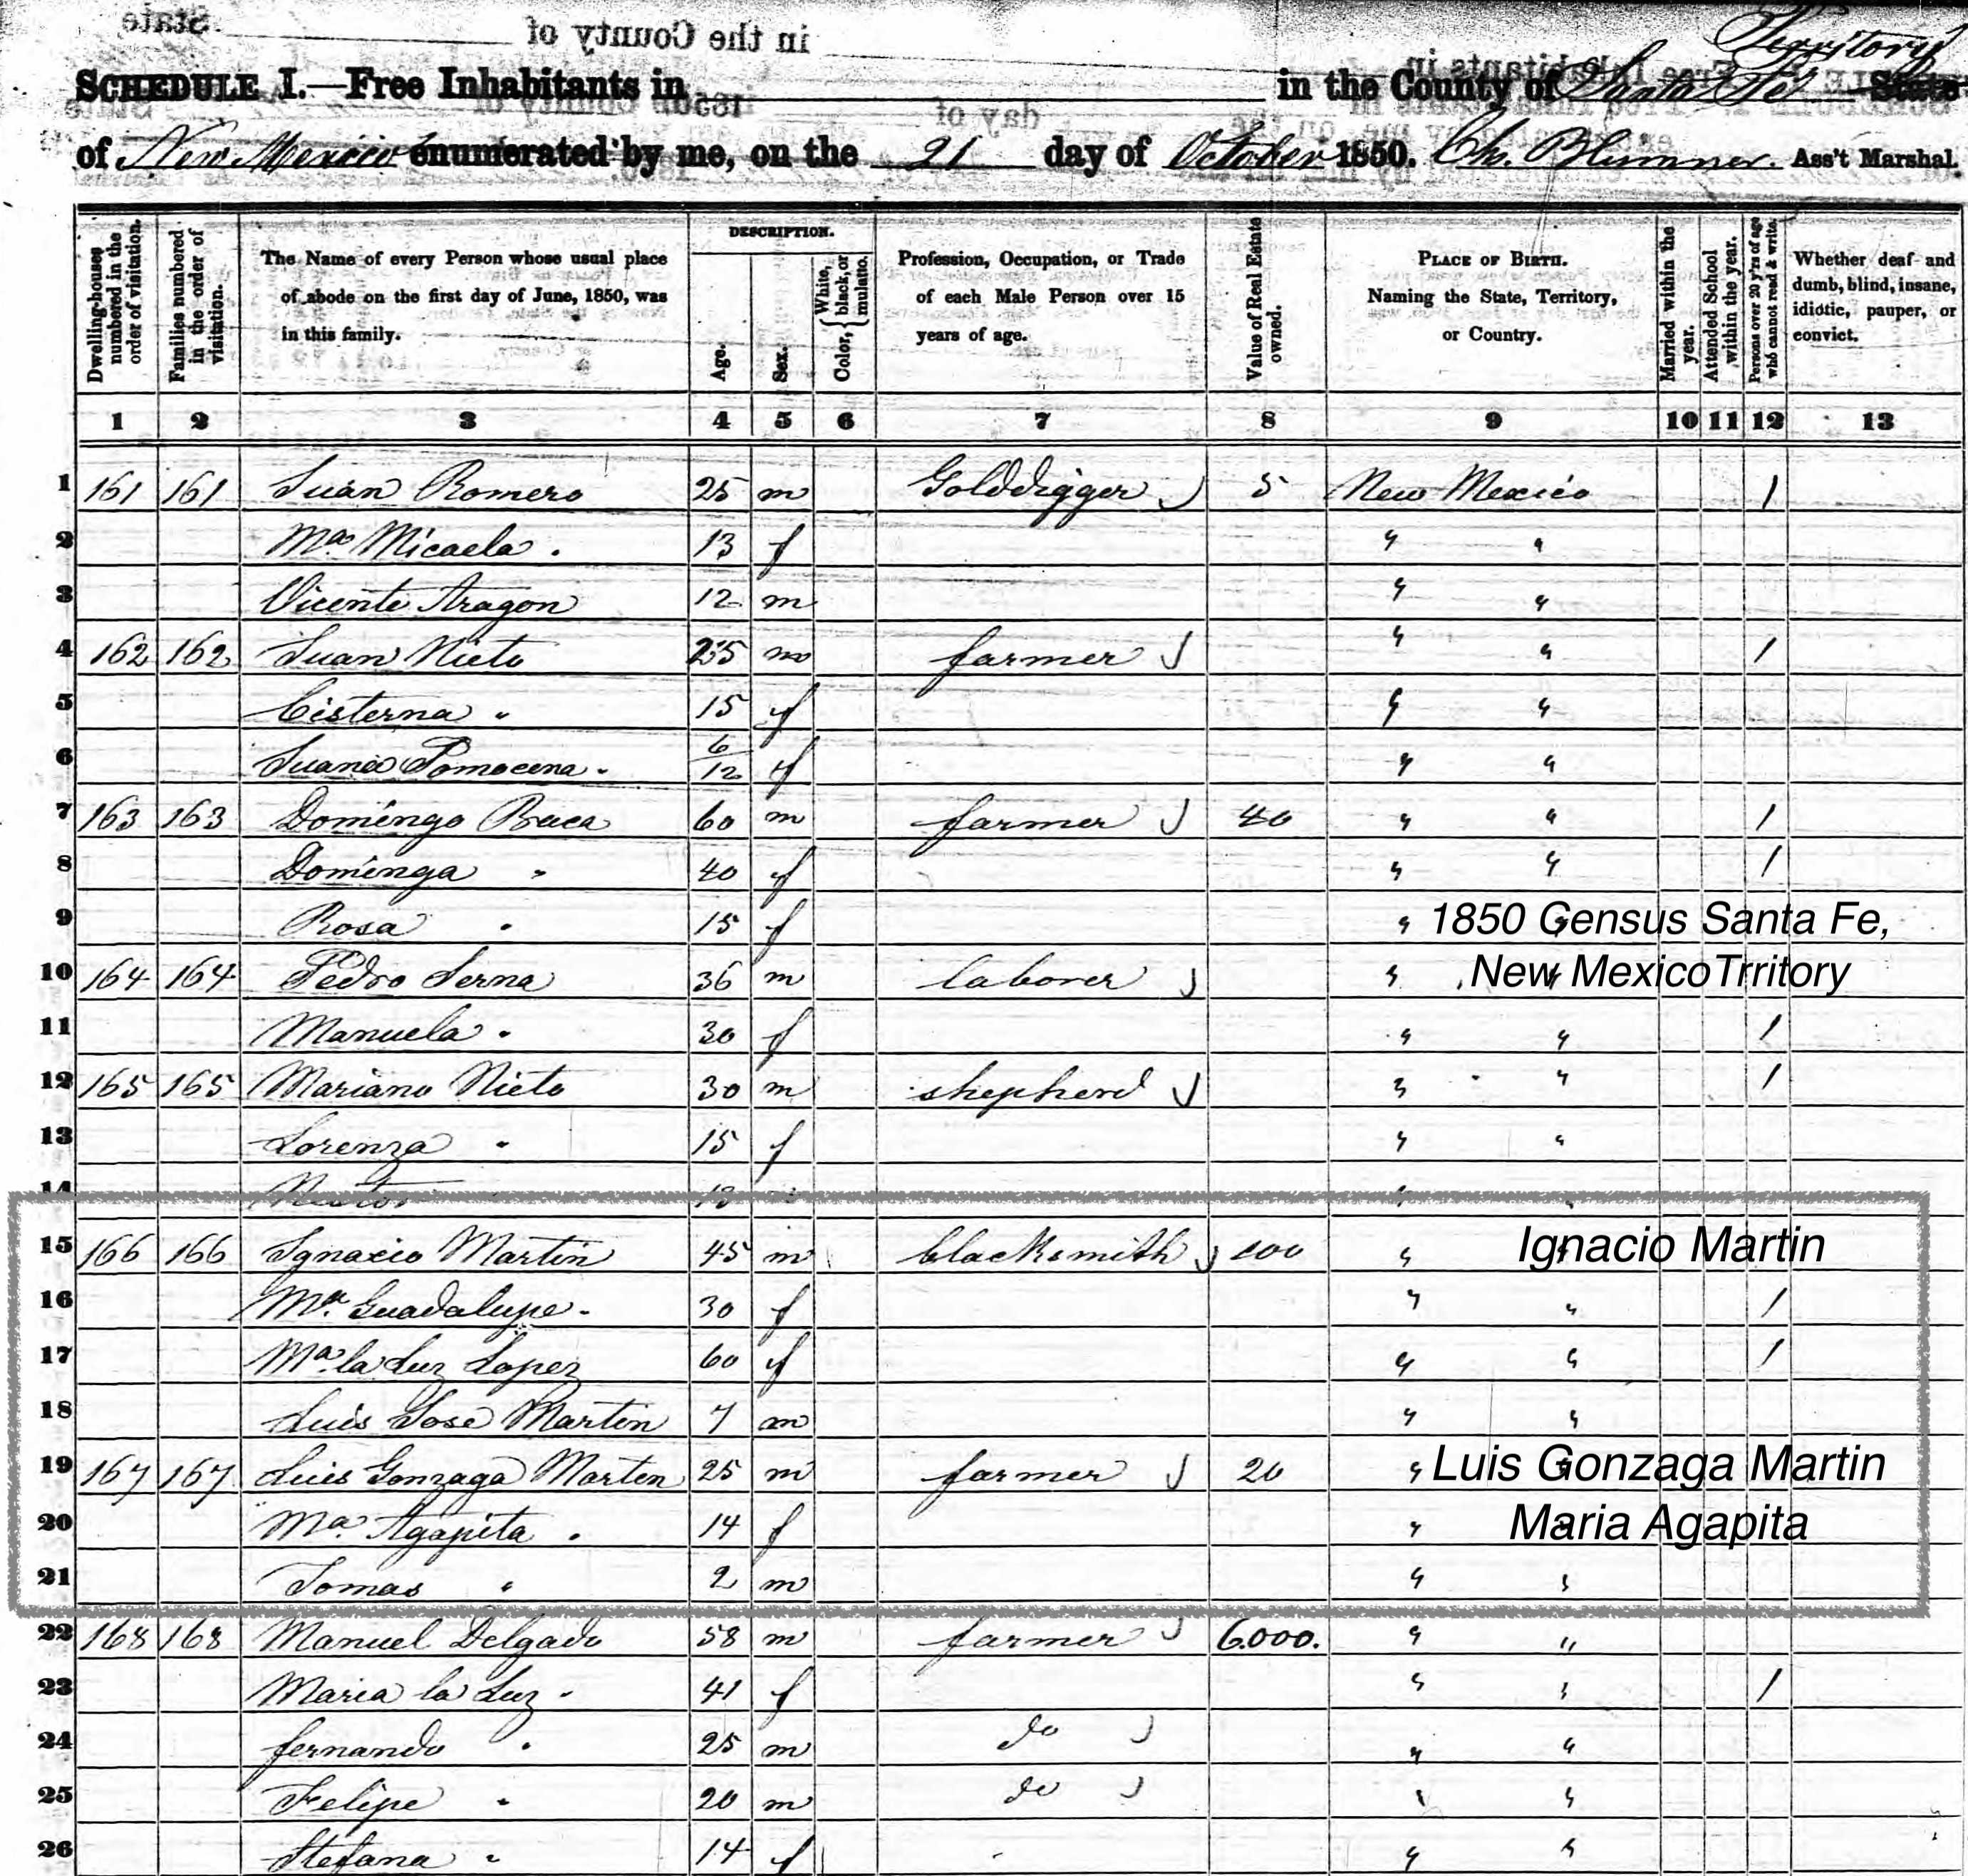 State
in the County of
Territory
SCHEDULE I.—Free Inhabitants in in the County of Santa Fe State
of New Mexico enumerated by me, on the 21 day of October 1850. Ch. Blumner. Ass't Marshal.
Dwelling-houses numbered in the order of visitation.
Families numbered in the order of visitation.
The Name of every Person whose usual place of abode on the first day of June, 1850, was in this family.
DESCRIPTION.
Age.
Sex.
Color, { White, black, or mulatto.
Profession, Occupation, or Trade of each Male Person over 15 years of age.
Value of Real Estate owned.
PLACE OF BIRTH. Naming the State, Territory, or Country.
Married within the year.
Attended School within the year.
Persons over 20 y'rs of age who cannot read & write.
Whether deaf and dumb, blind, insane, idiotic, pauper, or convict.
1 2 3 4 5 6 7 8 9 10 11 12 13
1 161 161 Juan Romero 25 m Golddigger 5 New Mexico /
2 Ma Micaela . 13 f " "
3 Vicente Aragon 12 m " "
4 162 162 Juan Nieto 25 m farmer " " /
5 Cisterna " 15 f " "
6 Juana Pomocena . 6/12 f " "
7 163 163 Domingo Baca 60 m farmer 40 " " /
8 Dominga " 40 f " " /
9 Rosa " 15 f " 1850 Census Santa Fe,
10 164 164 Pedro Serna 36 m laborer " New MexicoTrritory
11 Manuela " 30 f " " /
12 165 165 Mariano Nieto 30 m shepherd " " /
13 Lorenza " 15 f " "
14 " "
15 166 166 Ignacio Martin 45 m blacksmith 100 " Ignacio Martin
16 Ma Guadalupe . 30 f " " /
17 Ma la Luz Lopez 60 f " " /
18 Luis Jose Martin 7 m " "
19 167 167 Luis Gonzaga Martin 25 m farmer 20 " Luis Gonzaga Martin
20 Ma Agapita . 14 f " Maria Agapita
21 Tomas " 2 m " "
22 168 168 Manuel Delgado 58 m farmer 6.000. " "
23 Maria la Luz . 41 f " " /
24 fernando " 25 m do " "
25 Felipe " 20 m do " "
26 Stefana " 14 f " "